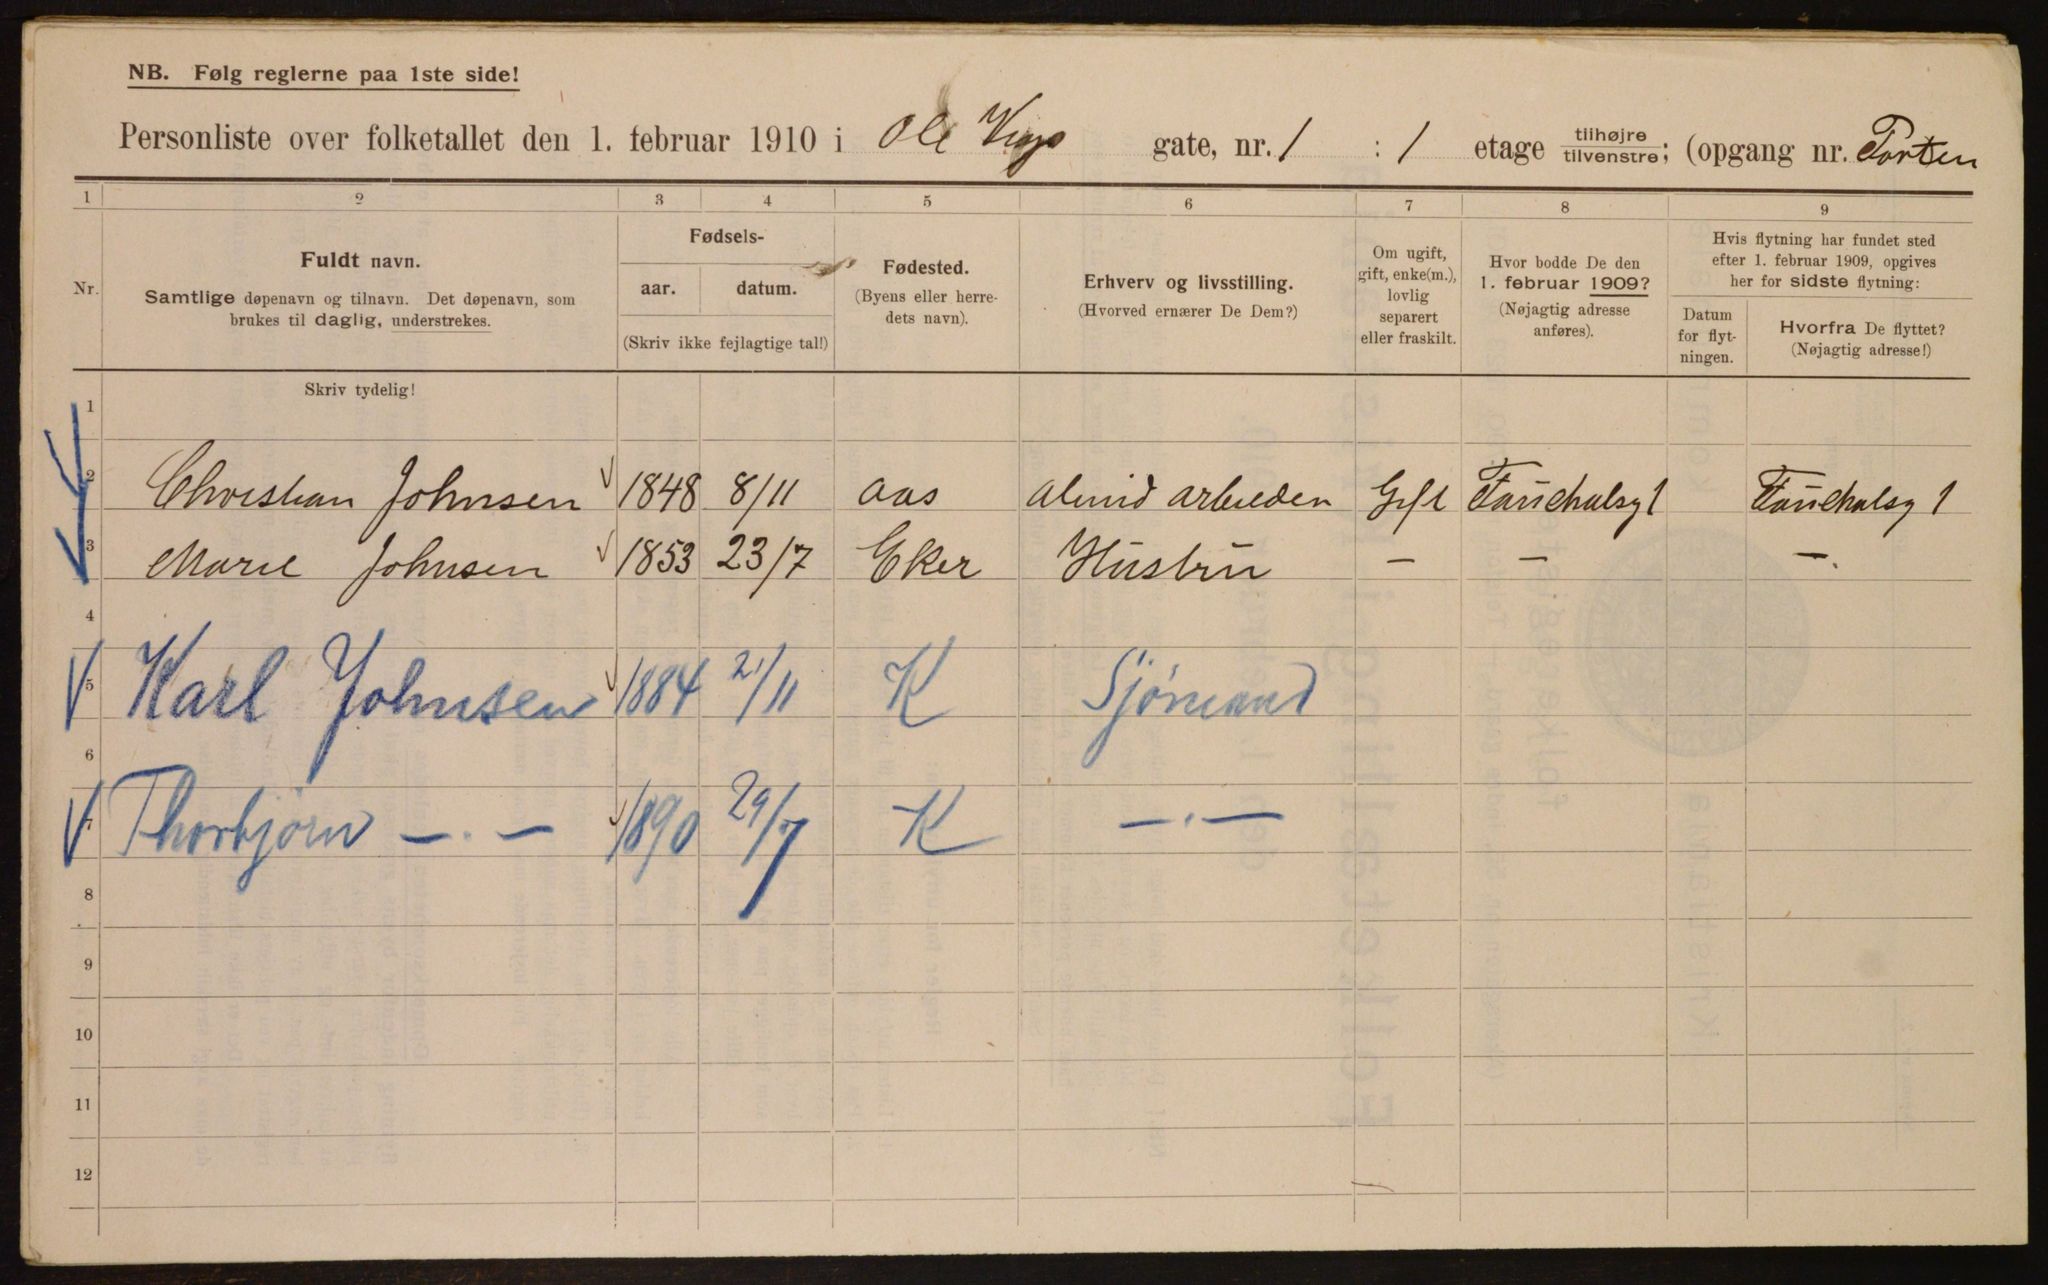 NB. Følg reglerne paa 1ste side!
Personliste over folketallet den 1. februar 1910 i Ole Vigs gate, nr. 1 : 1 etage tilhøjre/tilvenstre; (opgang nr. Porten
1 2 3 4 5 6 7 8 9
Nr.
Fuldt navn.
Samtlige døpenavn og tilnavn. Det døpenavn, som
brukes til daglig, understrekes.
Fødsels-
aar. datum.
(Skriv ikke fejlagtige tal!)
Fødested.
(Byens eller herre-
dets navn).
Erhverv og livsstilling.
(Hvorved ernærer De Dem?)
Om ugift,
gift, enke(m.),
lovlig
separert
eller fraskilt.
Hvor bodde De den
1. februar 1909?
(Nøjagtig adresse
anføres).
Hvis flytning har fundet sted
efter 1. februar 1909, opgives
her for sidste flytning:
Datum
for flyt-
ningen.
Hvorfra De flyttet?
(Nøjagtig adresse!)
Skriv tydelig!
1
2 Christian Johnsen 1848 8/11 Aas Gift 
3 Marie Johnsen 1853 23/7 Eker Hustru — — —.
4
5 Karl Johnsen 1884 21/11 K Sjømand
6
7 Thorbjørn —.— 1890 29/7 K —.—
8
9
10
11
12